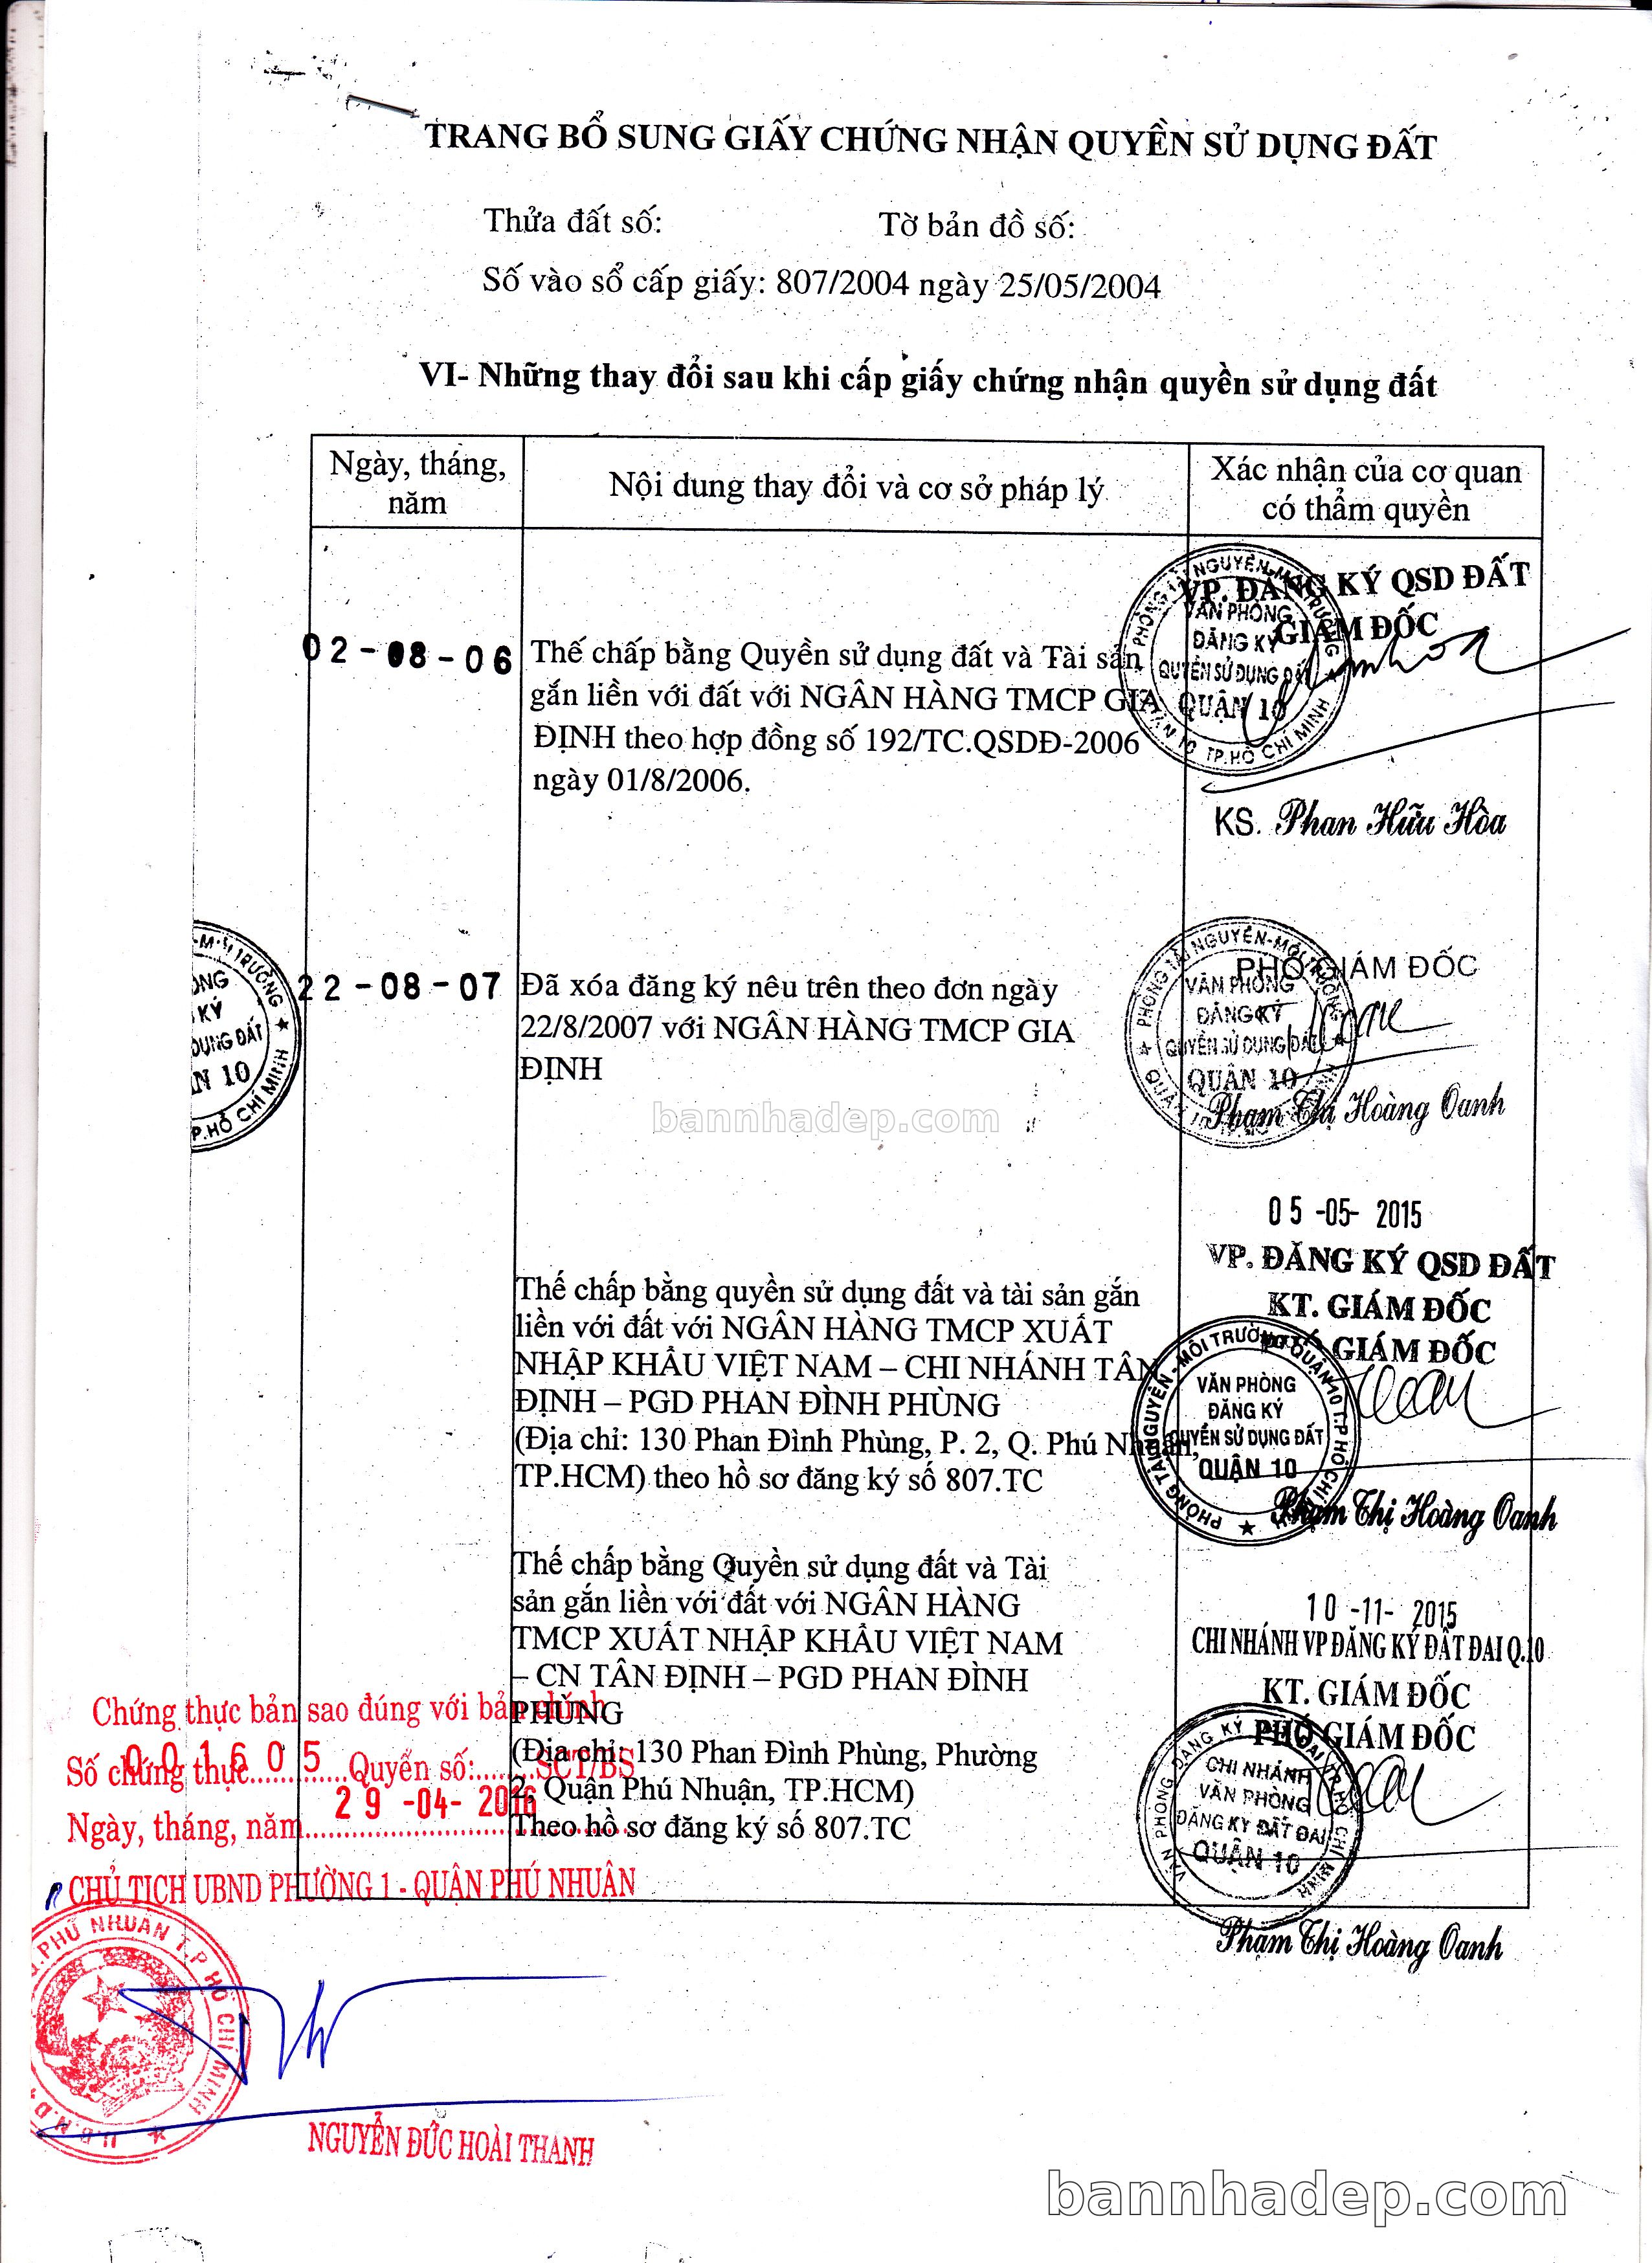 TRANG BỔ SUNG GIẤY CHỨNG NHẬN QUYỀN SỬ DỤNG ĐẤT
Thửa đất số: Tờ bản đồ số:
Số vào sổ cấp giấy: 807/2004 ngày 25/05/2004
VI- Những thay đổi sau khi cấp giấy chứng nhận quyền sử dụng đất
Ngày, tháng,
năm
Nội dung thay đổi và cơ sở pháp lý
Xác nhận của cơ quan
có thẩm quyền
02-08-06
Thế chấp bằng Quyền sử dụng đất và Tài sản
gắn liền với đất với NGÂN HÀNG TMCP GIA
ĐỊNH theo hợp đồng số 192/TC.QSDĐ-2006
ngày 01/8/2006.
VP. ĐĂNG KÝ QSD ĐẤT
GIÁM ĐỐC
PHÒNG TÀI NGUYÊN-MÔI TRƯỜNG
VĂN PHÒNG
ĐĂNG KÝ
QUYỀN SỬ DỤNG ĐẤT
QUẬN 10
QUẬN 10 TP.HỒ CHÍ MINH
KS. Phan Hữu Hòa
ÒNG
KÝ
DỤNG ĐẤT
N 10
P.HỒ CHÍ MINH
22-08-07
Đã xóa đăng ký nêu trên theo đơn ngày
22/8/2007 với NGÂN HÀNG TMCP GIA
ĐỊNH
PHÓ GIÁM ĐỐC
PHÒNG TÀI NGUYÊN-MÔI TRƯỜNG
VĂN PHÒNG
ĐĂNG KÝ
QUYỀN SỬ DỤNG ĐẤT
QUẬN 10
Phạm Thị Hoàng Oanh
bannhadep.com
05-05-2015
VP. ĐĂNG KÝ QSD ĐẤT
KT. GIÁM ĐỐC
PHÓ GIÁM ĐỐC
Thế chấp bằng quyền sử dụng đất và tài sản gắn
liền với đất với NGÂN HÀNG TMCP XUẤT
NHẬP KHẨU VIỆT NAM – CHI NHÁNH TÂN
ĐỊNH – PGD PHAN ĐÌNH PHÙNG
(Địa chỉ: 130 Phan Đình Phùng, P. 2, Q. Phú Nhuận,
TP.HCM) theo hồ sơ đăng ký số 807.TC
PHÒNG TÀI NGUYÊN - MÔI TRƯỜNG QUẬN 10 T.P HỒ CHÍ MINH
VĂN PHÒNG
ĐĂNG KÝ
QUYỀN SỬ DỤNG ĐẤT
QUẬN 10
Phạm Thị Hoàng Oanh
Thế chấp bằng Quyền sử dụng đất và Tài
sản gắn liền với đất với NGÂN HÀNG
TMCP XUẤT NHẬP KHẨU VIỆT NAM
– CN TÂN ĐỊNH – PGD PHAN ĐÌNH
PHÙNG
(Địa chỉ: 130 Phan Đình Phùng, Phường
2, Quận Phú Nhuận, TP.HCM)
Theo hồ sơ đăng ký số 807.TC
10-11-2015
CHI NHÁNH VP ĐĂNG KÝ ĐẤT ĐAI Q.10
KT. GIÁM ĐỐC
PHÓ GIÁM ĐỐC
VĂN PHÒNG ĐĂNG KÝ ĐẤT ĐAI TP.HỒ CHÍ MINH
CHI NHÁNH
VĂN PHÒNG
ĐĂNG KÝ ĐẤT ĐAI
QUẬN 10
Phạm Thị Hoàng Oanh
Chứng thực bản sao đúng với bản chính
Số chứng thực 001605 Quyển số:........SCT/BS
Ngày, tháng, năm 29-04-2016
CHỦ TỊCH UBND PHƯỜNG 1 - QUẬN PHÚ NHUẬN
Q.PHÚ NHUẬN T.P HỒ CHÍ MINH
U.B.N.D
NGUYỄN ĐỨC HOÀI THANH
bannhadep.com